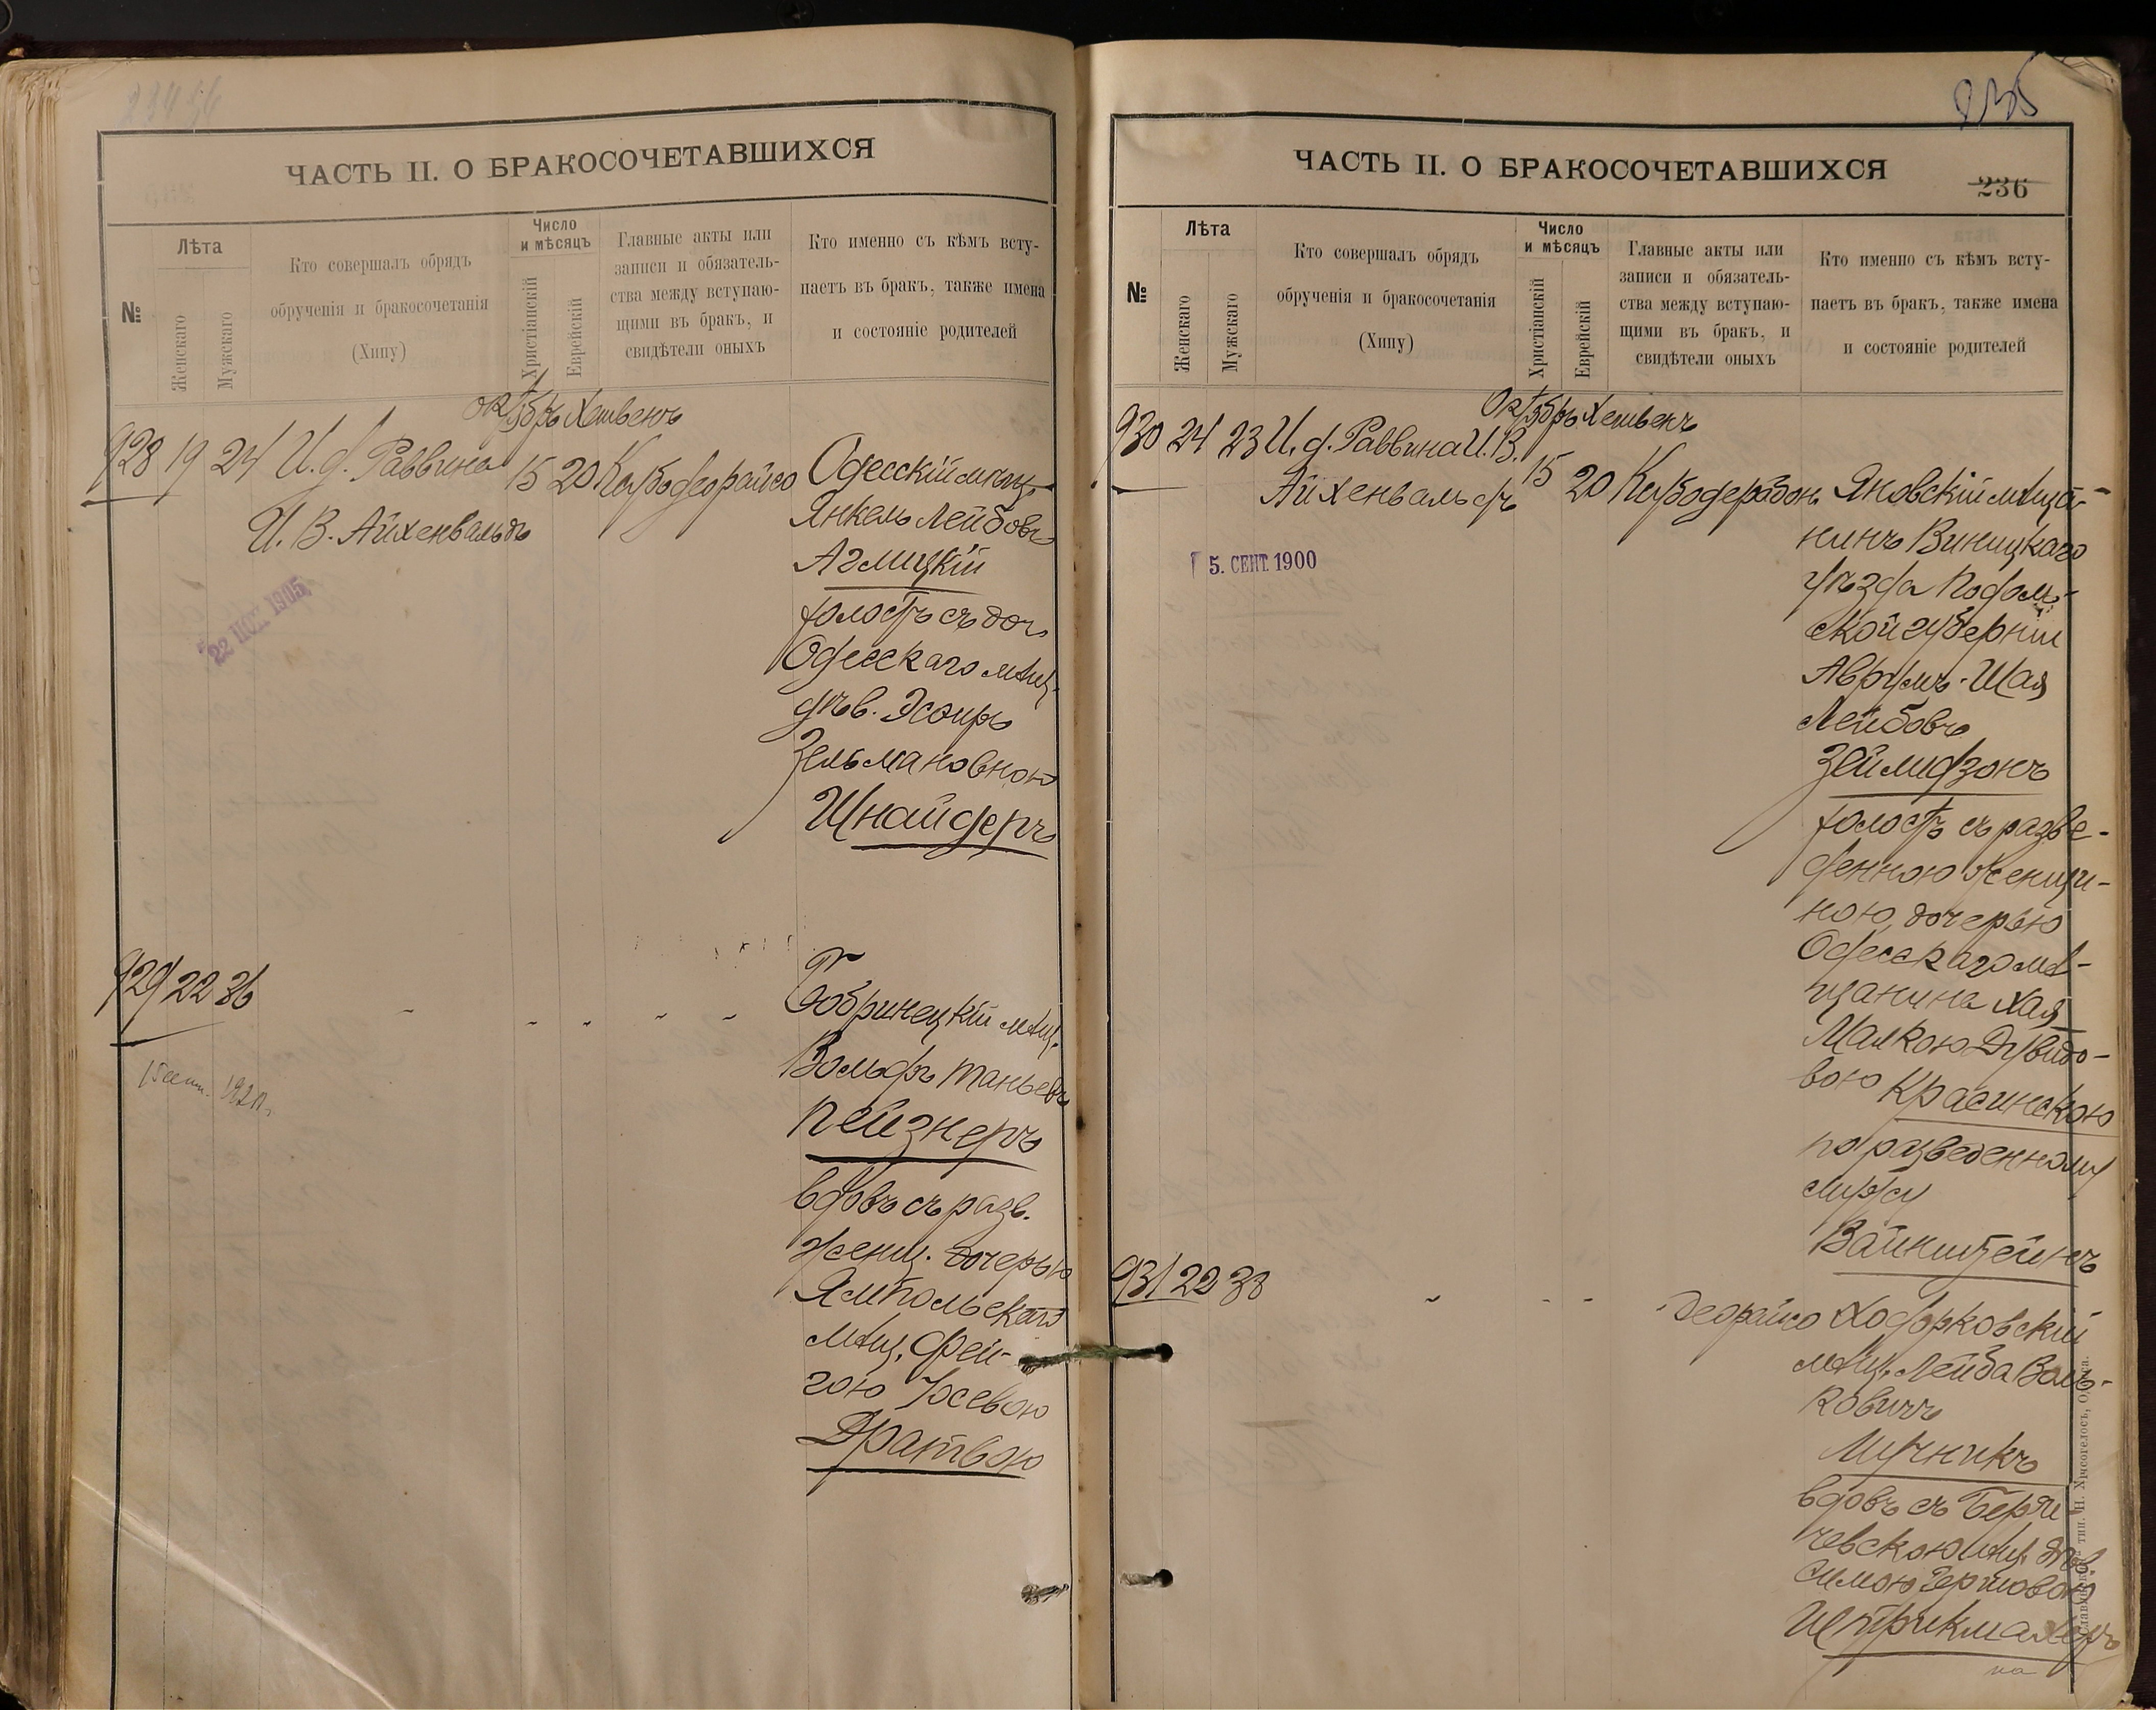 ЧАСТЬ II. О БРАКОСОЧЕТАВШИХСЯ
№
Лѣта
Женскаго
Мужскаго
Кто совершалъ обрядъ
обрученія и бракосочетанія
(Хипу)
Число
и мѣсяцъ
Христіанскій
Еврейскій
Главные акты или
записи и обязатель-
ства между вступаю-
щими въ бракъ, и
свидѣтели оныхъ
Кто именно съ кѣмъ всту-
паетъ въ бракъ, также имена
и состояніе родителей
Октябрь Хешвенъ
928 19 24 И. д. Раввина 15 20 Кусбо деорайсо Одесскій мѣщ.
И. В. Айхенвальдъ
Янкель Лейбовъ
Аглицкій
холостъ съ доч.
Одесскаго мѣщ.
дѣв. Эсѳирь
Зельмановною
Шнайдеръ
22 1905
929 22 36
Бобринецкій мѣщ.
Вольфъ Таньевъ
Пейзнеръ
вдовъ съ разв.
женщ. дочерью
Ямпольскаго
мѣщ. Фей-
гою Іосевою
Дратвою
ЧАСТЬ II. О БРАКОСОЧЕТАВШИХСЯ
235
236
№
Лѣта
Женскаго
Мужскаго
Кто совершалъ обрядъ
обрученія и бракосочетанія
(Хипу)
Число
и мѣсяцъ
Христіанскій
Еврейскій
Главные акты или
записи и обязатель-
ства между вступаю-
щими въ бракъ, и
свидѣтели оныхъ
Кто именно съ кѣмъ всту-
паетъ въ бракъ, также имена
и состояніе родителей
Октябрь Хешвенъ
930 24 23 И. д. Раввина И. В.
Айхенвальдъ 15 20 Кусбо дерабон. Яновскій мѣща-
нинъ Виницкаго
уѣзда Подоль-
ской губерніи
Аврумъ-Шая
Лейбовъ
Зейлидзонъ
холостъ съ разве-
денною женщи-
ною, дочерью
Одесскаго мѣ-
щанина Хая
Малкою Дувидо-
вою Красинскою
по разведенному
мужу
Вайнштейнъ
5. СЕНТ. 1900
931 22 38
деорайсо Ходорковскій
мѣщ. Лейба Воль-
ковичъ
Мучникъ
вдовъ съ Берди
чевскою мѣщ. дѣв.
Симою Гершовою
Штрикмахеръ
Славянская тип. Н. Хрисогелосъ, Одесса.